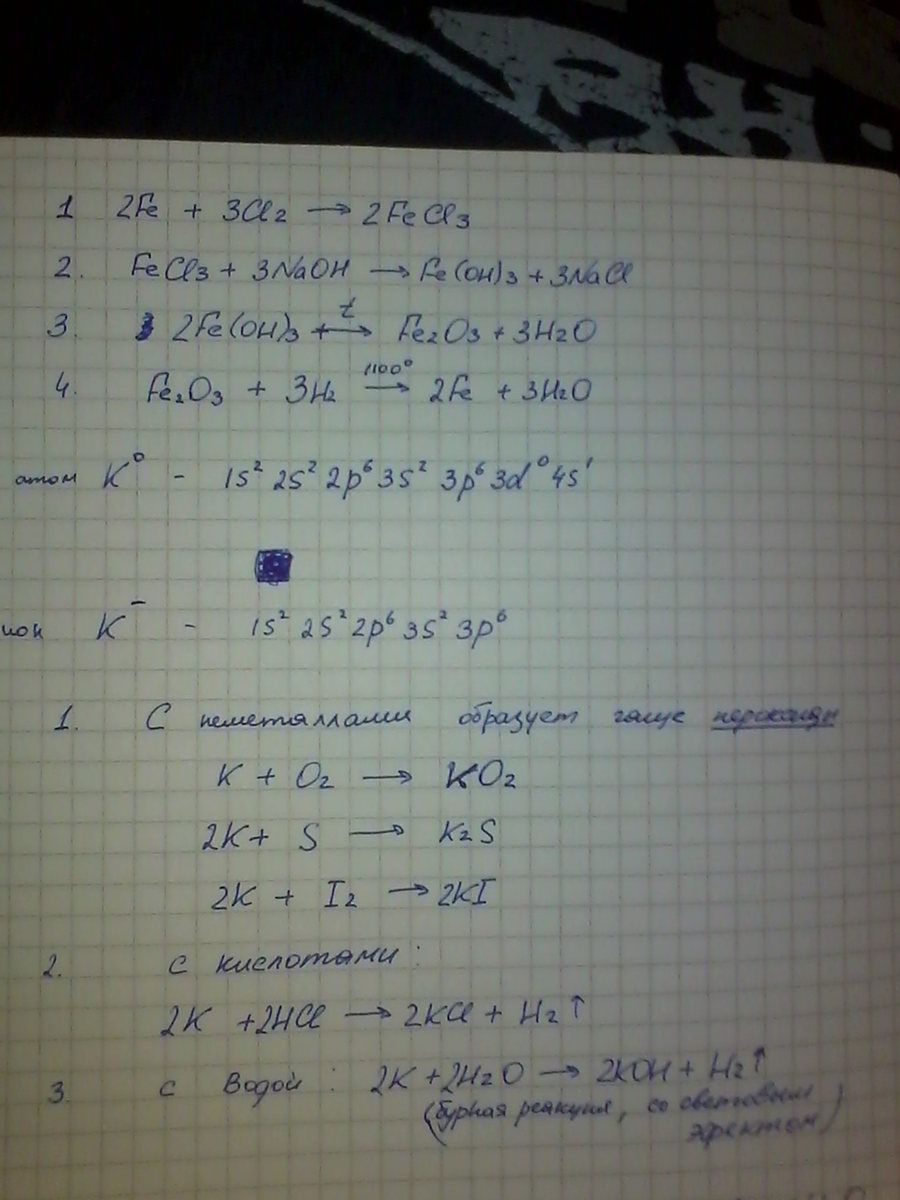 1 2Fe + 3Cl2 → 2FeCl3
2. FeCl3 + 3NaOH → Fe(OH)3 + 3NaCl
3. 2Fe(OH)3 t → Fe2O3 + 3H2O
4. Fe2O3 + 3H2 1100° → 2Fe + 3H2O
атом K⁰ - 1s² 2s² 2p⁶ 3s² 3p⁶ 3d⁰ 4s¹
ион K⁻ - 1s² 2s² 2p⁶ 3s² 3p⁶
1. С неметаллами образует пероксиды
K + O2 → KO2
2K + S → K2S
2K + I2 → 2KI
2. с кислотами:
2K + 2HCl → 2KCl + H2↑
3. с Водой: 2K + 2H2O → 2KOH + H2↑
(бурная реакция, со световым
эфектом)